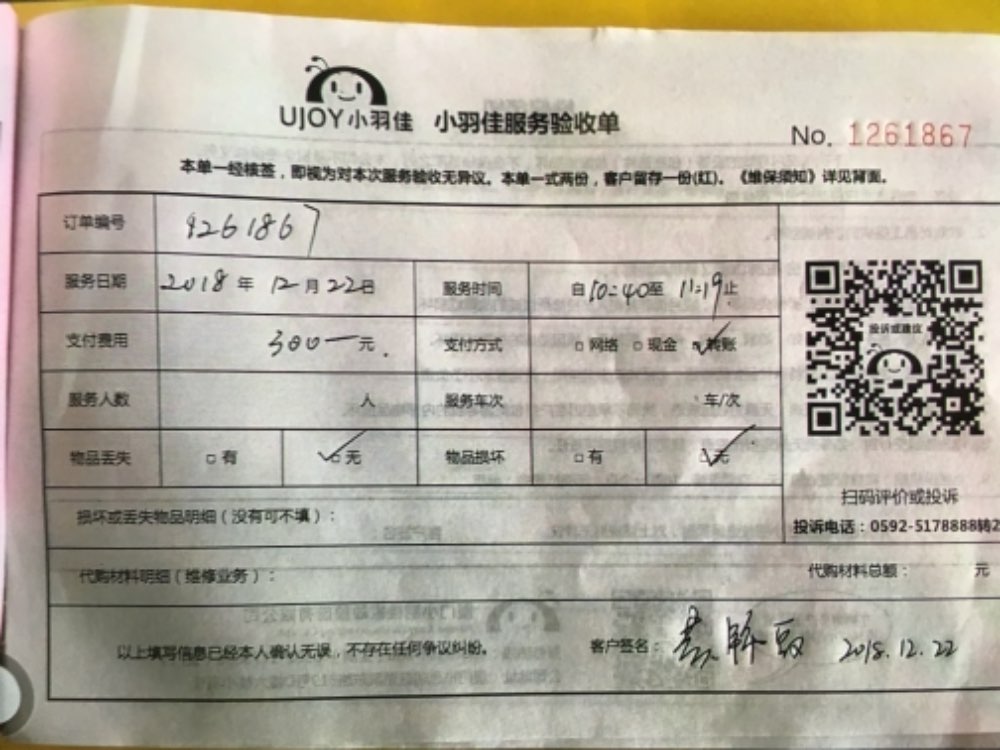 UJOY小羽佳 小羽佳服务验收单
No. 1261867
本单一经核签，即视为对本次服务验收无异议。本单一式两份，客户留存一份(红)。《维保须知》详见背面。
订单编号 9261867
服务日期 2018年12月22日 服务时间 自10:40至11:19止
支付费用 300一元. 支付方式 □网络 □现金 ☑转账
服务人数 人 服务车次 车/次
物品丢失 □有 ☑无 物品损坏 □有 ☑无
投诉或建议
扫码评价或投诉
投诉电话：0592-5178888转2
损坏或丢失物品明细（没有可不填）：
代购材料明细（维修业务）： 代购材料总额： 元
以上填写信息已经本人确认无误，不存在任何争议纠纷。 客户签名： 2018.12.22